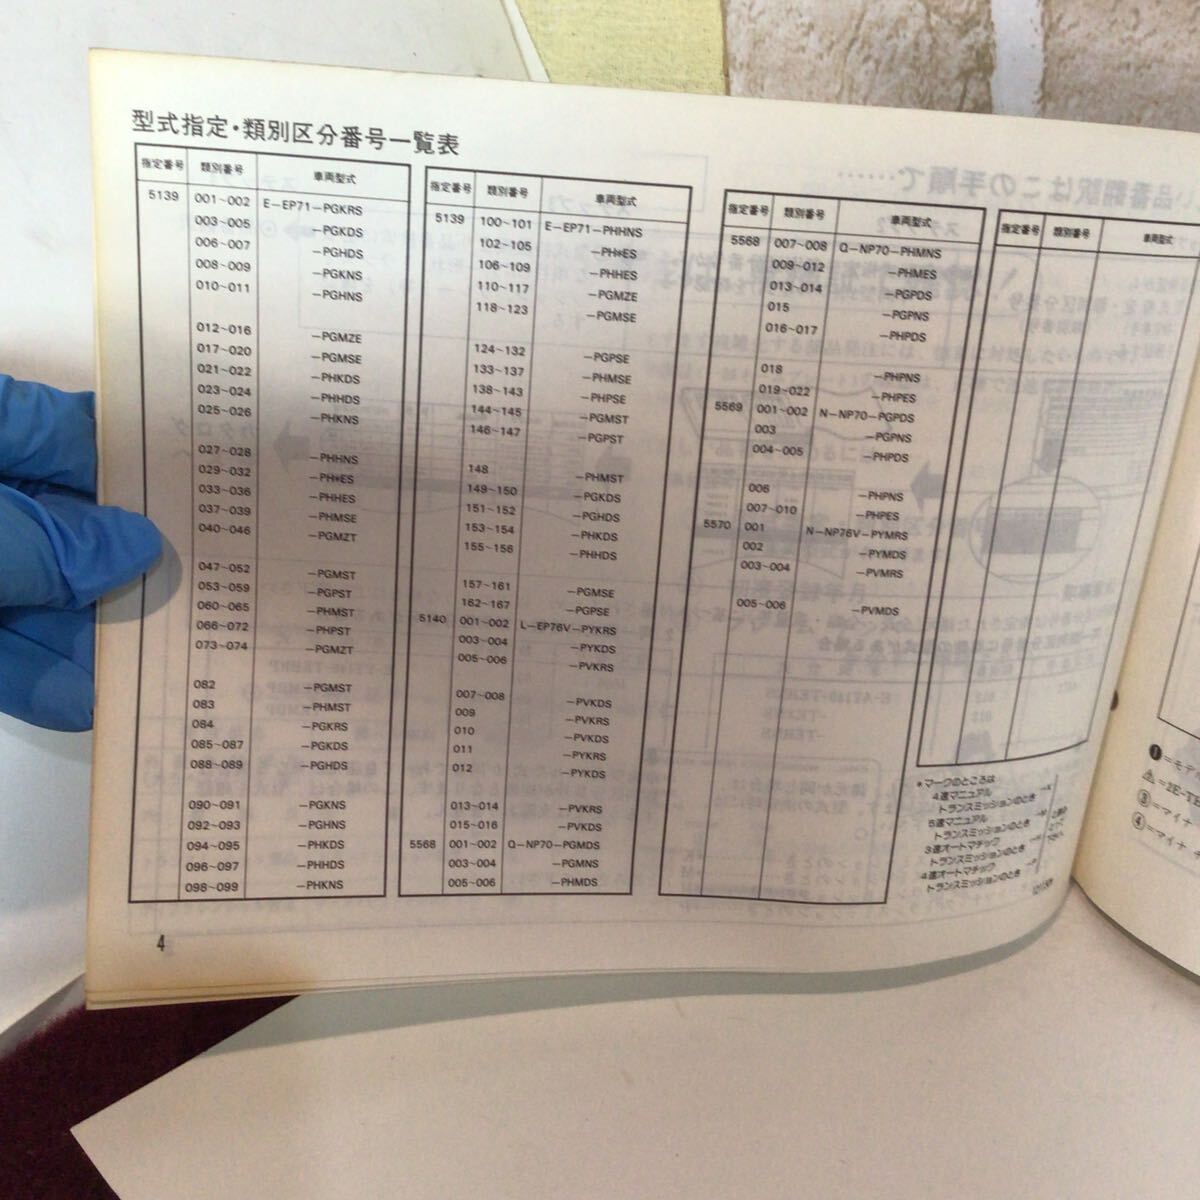 型式指定・類別区分番号一覧表
指定番号 類別番号 車両型式
5139 001~002 E-EP71-PGKRS
003~005 -PGKDS
006~007 -PGHDS
008~009 -PGKNS
010~011 -PGHNS
012~016 -PGMZE
017~020 -PGMSE
021~022 -PHKDS
023~024 -PHHDS
025~026 -PHKNS
027~028 -PHHNS
029~032 -PH*ES
033~036 -PHHES
037~039 -PHMSE
040~046 -PGMZT
047~052 -PGMST
053~059 -PGPST
060~065 -PHMST
066~072 -PHPST
073~074 -PGMZT
082 -PGMST
083 -PHMST
084 -PGKRS
085~087 -PGKDS
088~089 -PGHDS
090~091 -PGKNS
092~093 -PGHNS
094~095 -PHKDS
096~097 -PHHDS
098~099 -PHKNS
指定番号 類別番号 車両型式
5139 100~101 E-EP71-PHHNS
102~105 -PH*ES
106~109 -PHHES
110~117 -PGMZE
118~123 -PGMSE
124~132 -PGPSE
133~137 -PHMSE
138~143 -PHPSE
144~145 -PGMST
146~147 -PGPST
148 -PHMST
149~150 -PGKDS
151~152 -PGHDS
153~154 -PHKDS
155~156 -PHHDS
157~161 -PGMSE
162~167 -PGPSE
5140 001~002 L-EP76V-PYKRS
003~004 -PYKDS
005~006 -PVKRS
007~008 -PVKDS
009 -PVKRS
010 -PVKDS
011 -PYKRS
012 -PYKDS
013~014 -PVKRS
015~016 -PVKDS
5568 001~002 Q-NP70-PGMDS
003~004 -PGMNS
005~006 -PHMDS
指定番号 類別番号 車両型式
5568 007~008 Q-NP70-PHMNS
009~012 -PHMES
013~014 -PGPDS
015 -PGPNS
016~017 -PHPDS
018 -PHPNS
019~022 -PHPES
5569 001~002 N-NP70-PGPDS
003 -PGPNS
004~005 -PHPDS
006 -PHPNS
007~010 -PHPES
5570 001 N-NP76V-PYMRS
002 -PYMDS
003~004 -PVMRS
005~006 -PVMDS
指定番号 類別番号 車両型式
*マークのところは
4速マニュアル
トランスミッションのとき
5速マニュアル
トランスミッションのとき
3速オートマチック
トランスミッションのとき
4速オートマチック
トランスミッションのとき
4